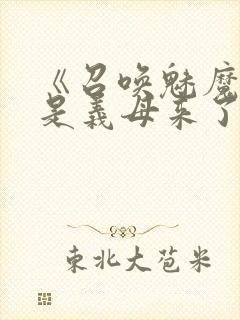 《召唤魅魔
是义母来了
東北大苞米